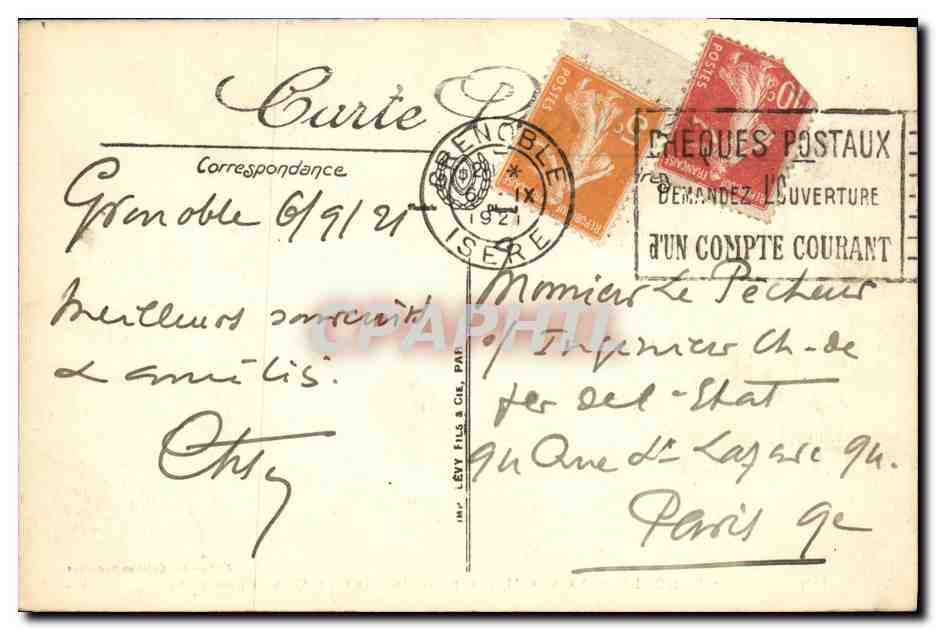 Carte
Correspondance
Grenoble 6/9/21
Meilleurs souvenirs
& amitiés.
IMP. LÉVY FILS & CIE, PAR
GRENOBLE
6 IX
1921
ISERE
POSTES
5c
POSTES
10c
CHEQUES POSTAUX
DEMANDEZ L'OUVERTURE
d'UN COMPTE COURANT
Monsieur Le Pecheur
Ingenieur Ch. de
fer de l'Etat
Lazare
Paris 9e
CPAPHIL